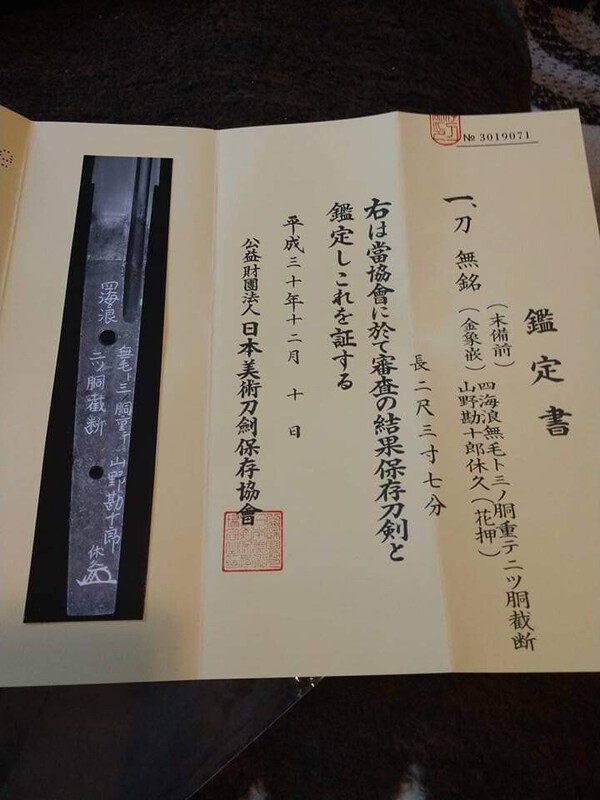 № 3019071
鑑定書
一、刀 無銘
(末備前)
(金象嵌)
四海浪無毛ト三ノ胴重テ二ツ胴截断
山野勘十郎休久(花押)
長二尺三寸七分
右は當協會に於て審査の結果保存刀剣と
鑑定しこれを証する
平成三十年十二月 十 日
公益財團法人日本美術刀劍保存協會
四海浪
無毛ト三ノ胴重テ
二ツ胴截断
山野勘十郎
休久